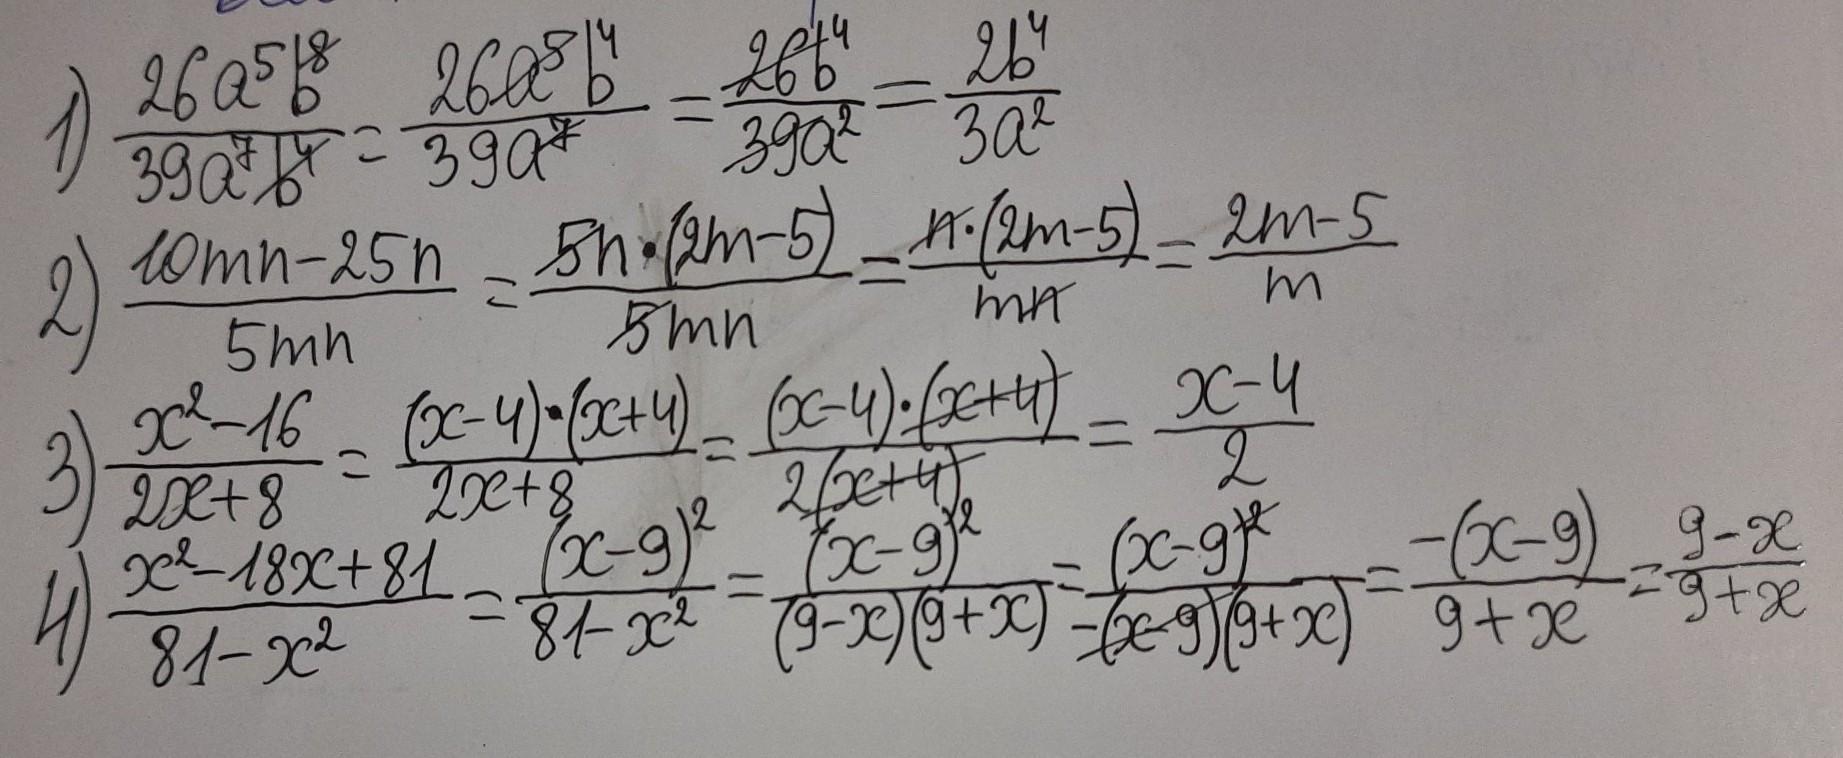 1) 26a⁵b⁸/39a⁷b⁴ = 26a⁵b⁴/39a⁷ = 26b⁴/39a² = 2b⁴/3a²
2) 10mn-25n/5mn = 5n·(2m-5)/5mn = n·(2m-5)/mn = 2m-5/m
3) x²-16/2x+8 = (x-4)·(x+4)/2x+8 = (x-4)·(x+4)/2(x+4) = x-4/2
4) x²-18x+81/81-x² = (x-9)²/81-x² = (x-9)²/(9-x)(9+x) = (x-9)²/-(x-9)(9+x) = -(x-9)/9+x = 9-x/9+x